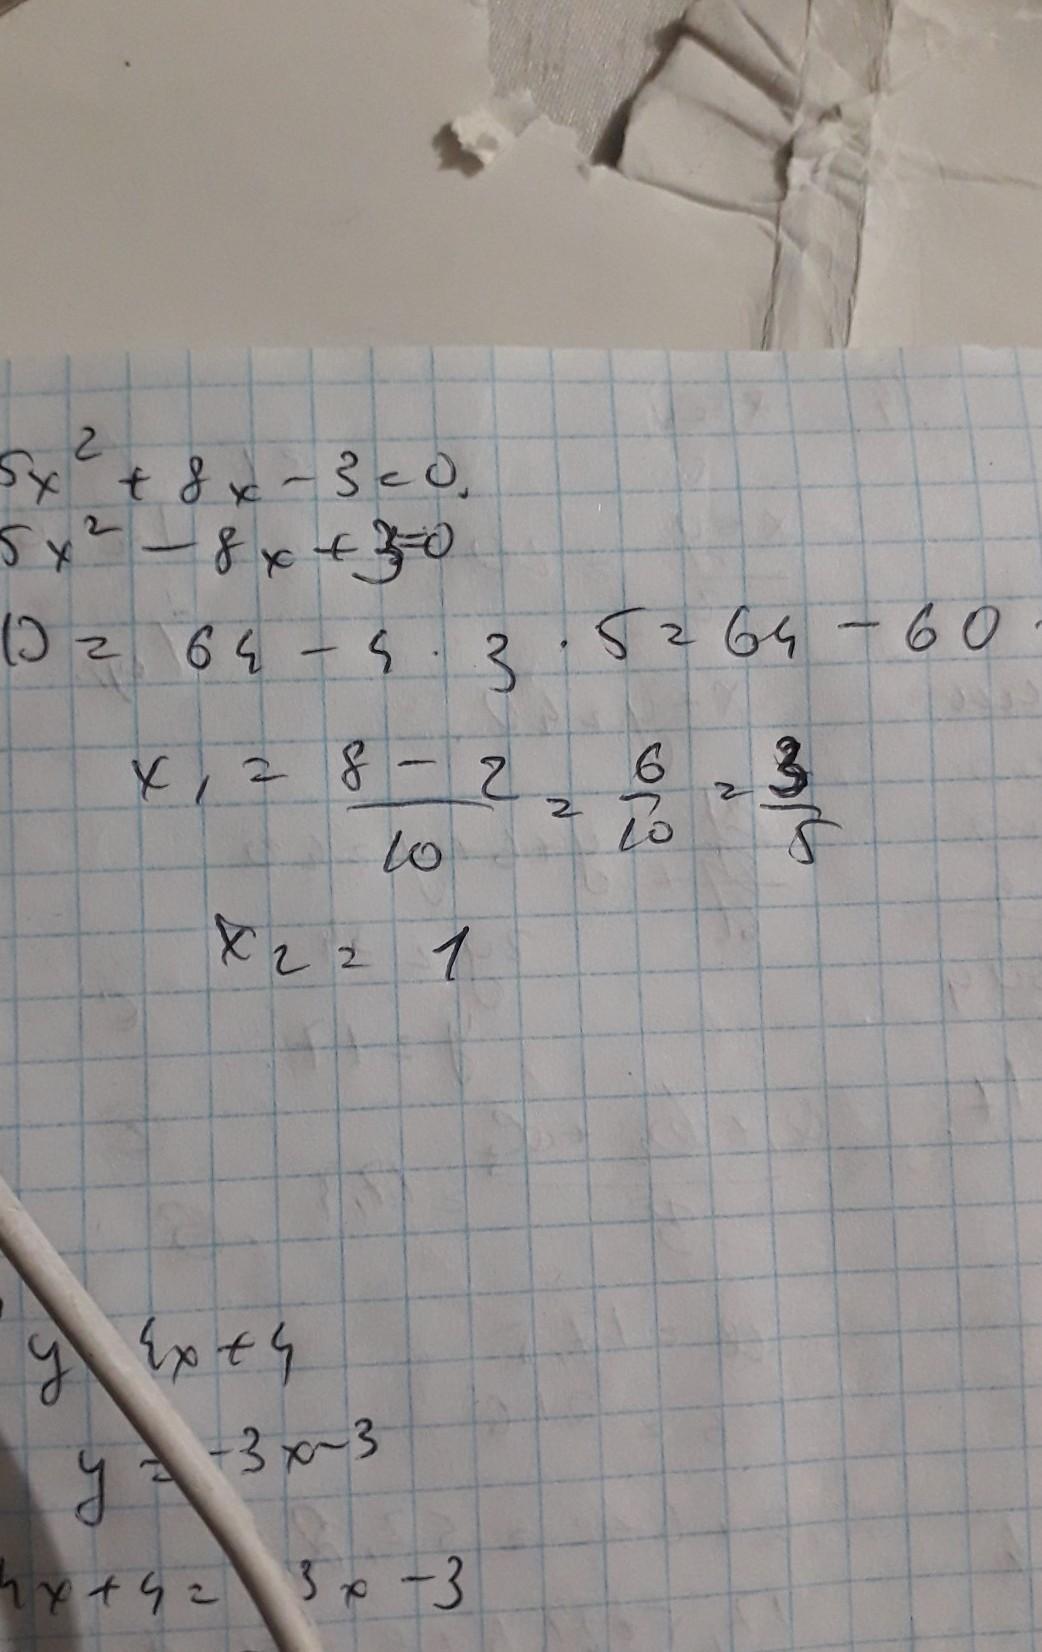 5x² + 8x - 3 = 0.
5x² - 8x + 3 = 0
D = 64 - 4 · 3 · 5 = 64 - 60
x₁ = (8 - 2)/10 = 6/10 = 3/5
x₂ = 1
y 4x + 4
y = -3x - 3
4x + 4 = 3x - 3